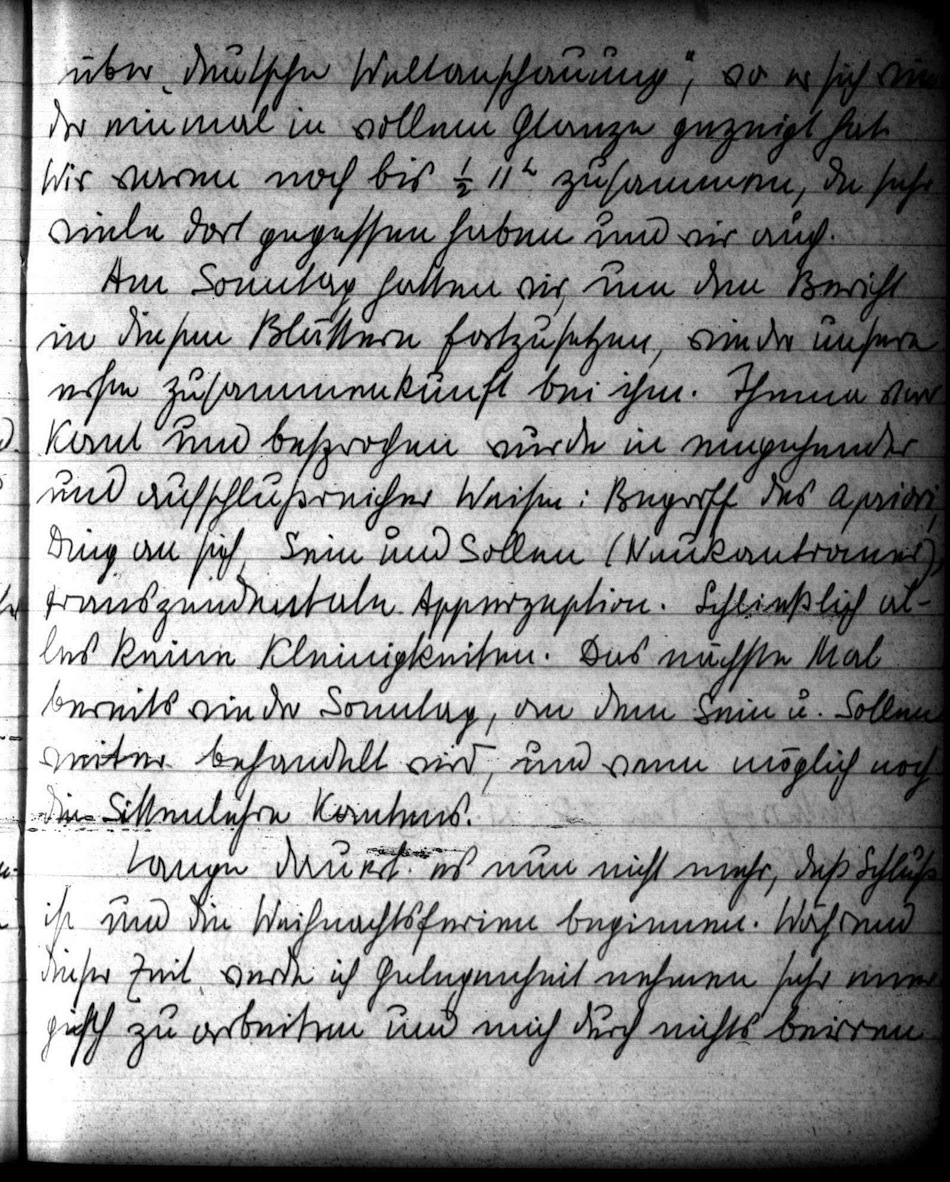 über „deutsche Weltanschauung", wo er sich wie
der einmal in vollem Glanze gezeigt hat.
Wir waren noch bis ½ 11ʰ zusammen, da sehr
viele dort gegessen haben und wir auch.
Am Sonntag hatten wir, um den Bericht
in diesen Blättern fortzusetzen, wieder unsere
erste Zusammenkunft bei ihm. Thema war
Kant und besprochen wurde in eingehender
und aufschlußreicher Weise: Begriff des Apriori,
Ding an sich, Sein und Sollen (Neukantianer),
transzendentale Apperzeption. Schließlich al-
les keine Kleinigkeiten. Das nächste Mal
bereits wieder Sonntag, an dem Sein u. Sollen
weiter behandelt wird, und wenn möglich noch
die Sittenlehre Kantens.
Lange dauert es nun nicht mehr, daß Schluß
ist und die Weihnachtsferien beginnen. Während
dieser Zeit werde ich Gelegenheit nehmen sehr ener
gisch zu arbeiten und mich durch nichts beirren